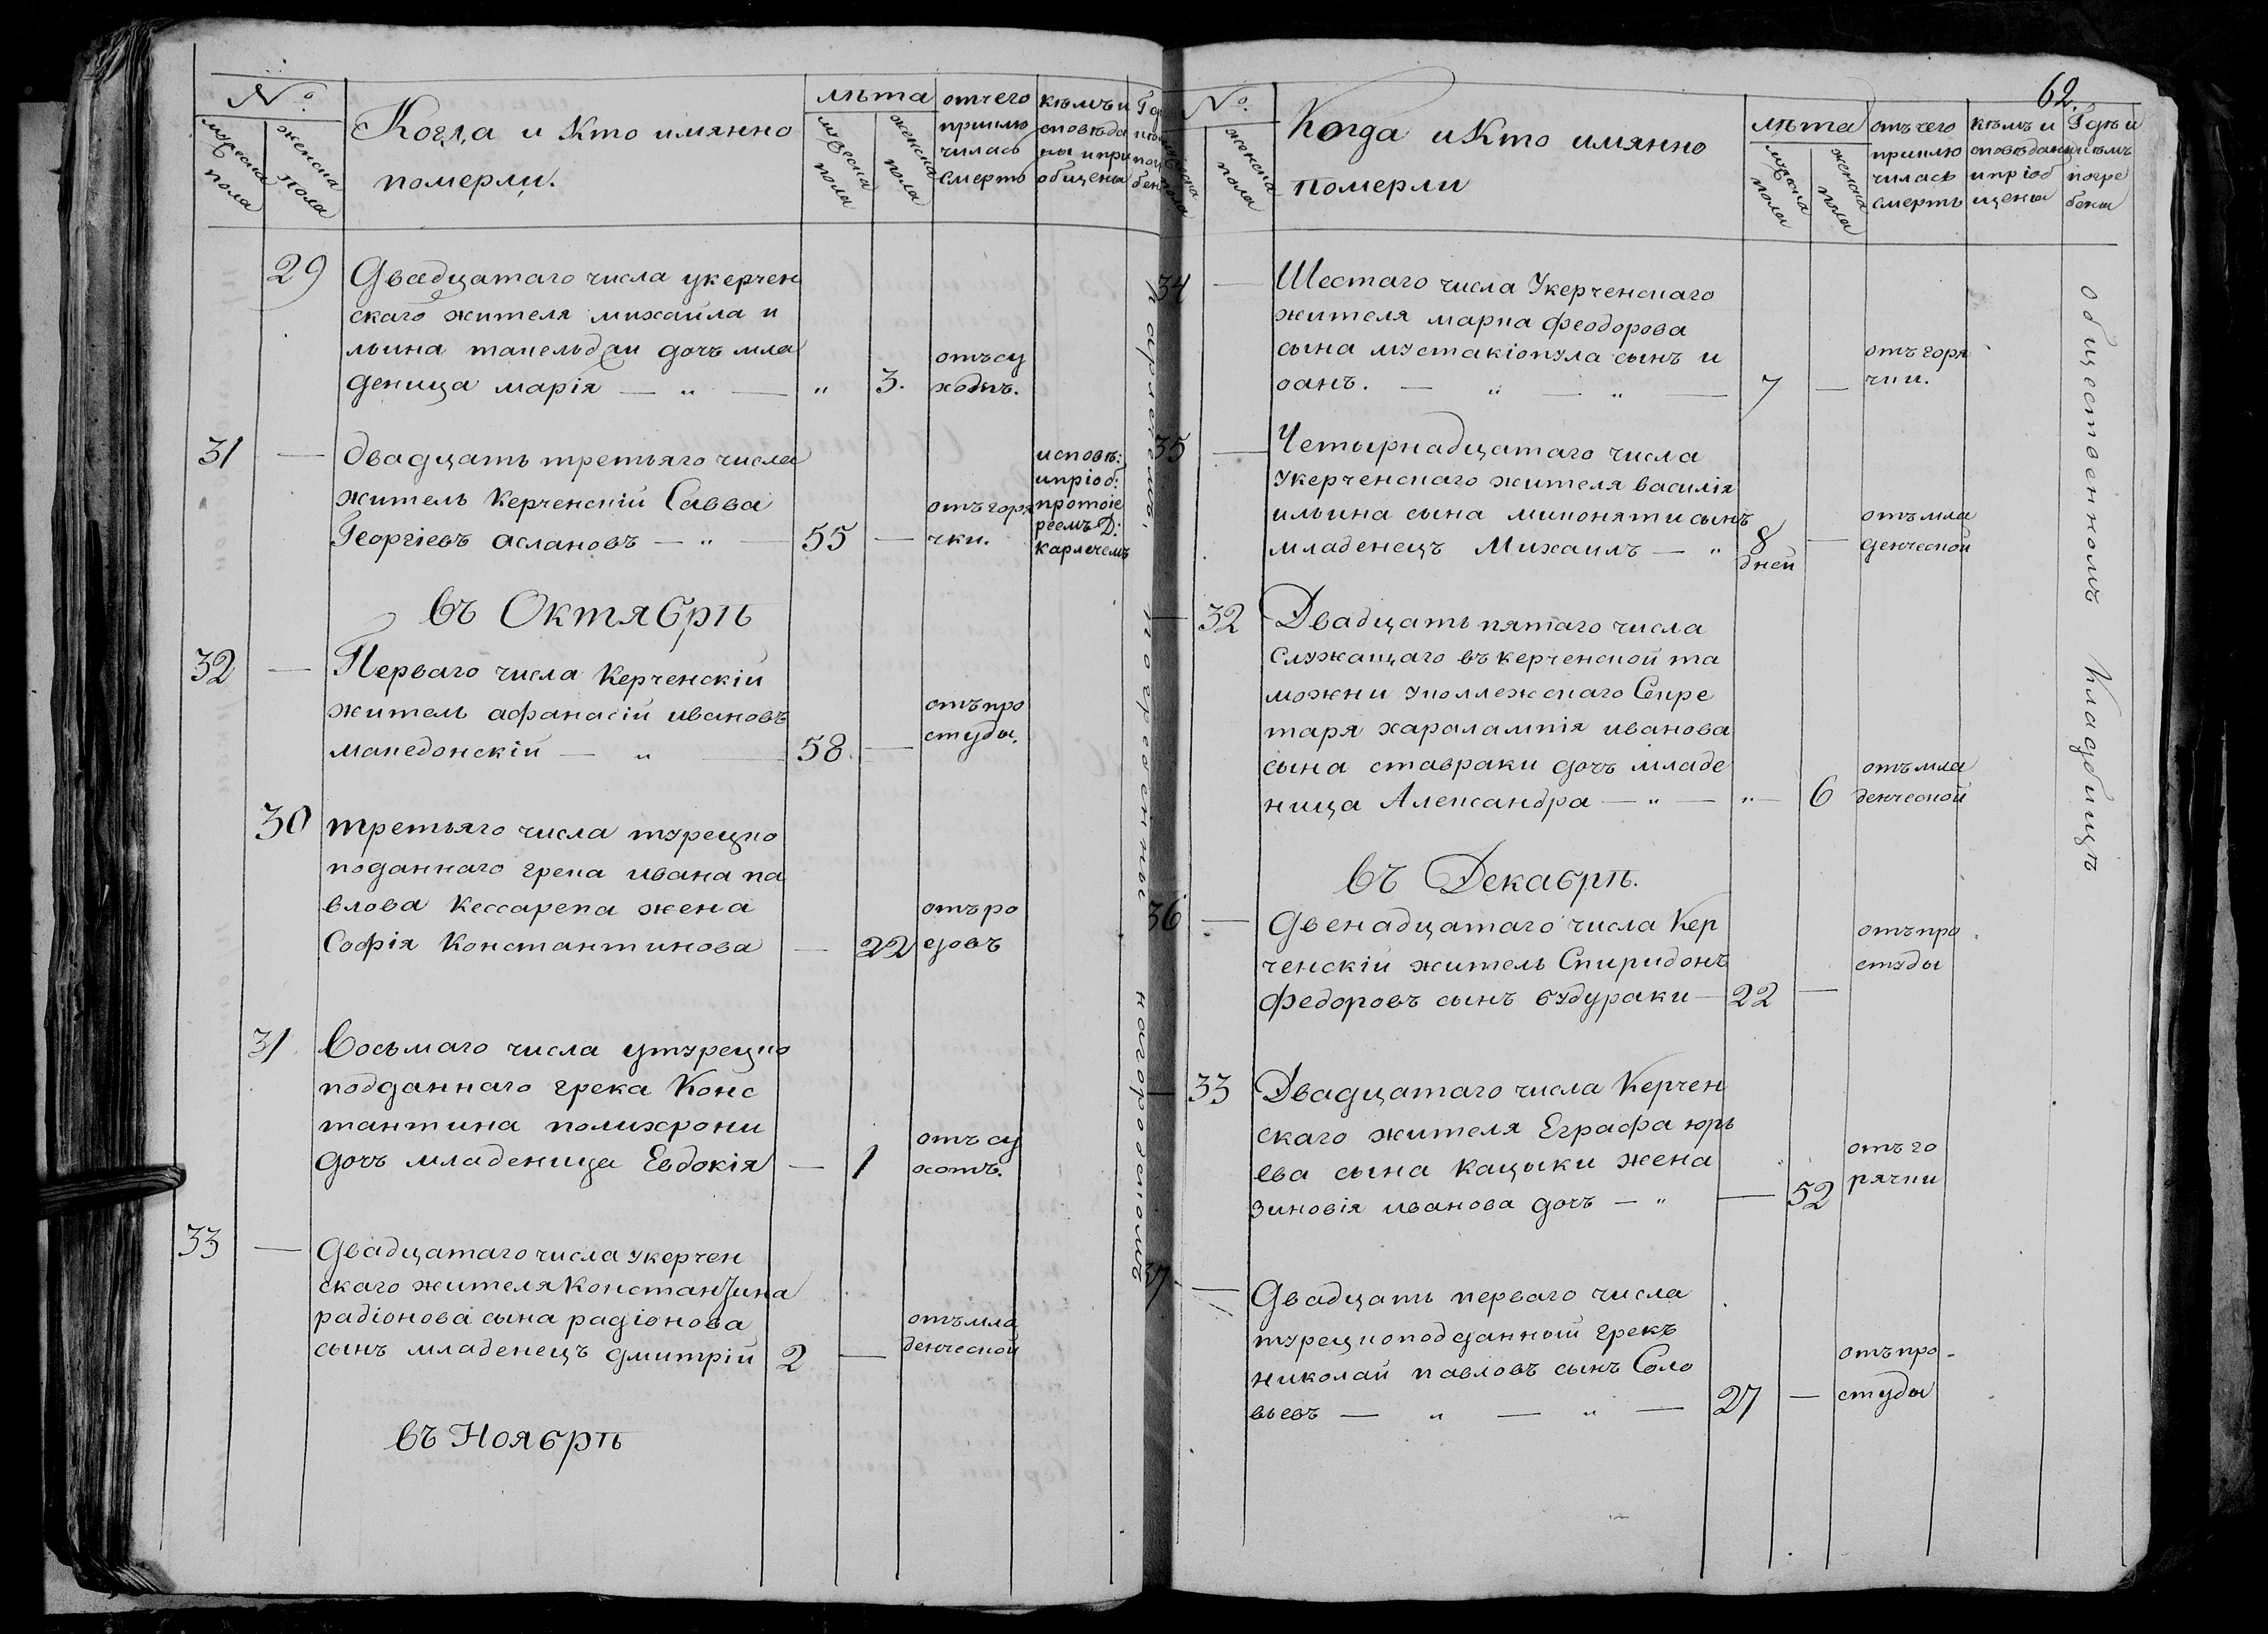 №
мужеска пола
женска пола
Когда и Кто имянно
померли.
лѣта
мужеска пола
женска пола
отчего
приклю
чилась
смерть
кѣмъ и
сповѣда
ны и при
общены
29
Двадцатаго числа укерчен
скаго жителя михаила и
льина
дочъ мла
деница марія — „ —
„
3.
отъ су
хотъ.
31
—
двадцать третьяго числа
житель Керченскій Савва
Георгіевъ аслановъ — „ —
55
—
отъ горя
чки.
исповѣ:
и пріоб:
протоіе
реемъ Д:
карлечемъ
въ Октябрѣ
32
—
Перваго числа Керченскій
житель афанасій ивановъ
македонскій — „ —
58.
—
отъ про
студы.
30
третьяго числа турецко
поданнаго грека ивана па
влова Кессарека жена
Софія Константинова
—
22
отъ ро
довъ
31.
Восьмаго числа утурецко
подданнаго грека Конс
тантина полихрони
дочъ младеница Евдокія
—
1
отъ су
хотъ.
33
—
Двадцатаго числа укерчен
скаго жителя Константина
радіонова сына радіонова
сынъ младенецъ дмитрій
2
—
отъ мла
денческой
въ Ноябрѣ
погребенны на городскомъ
62.
№
женска пола
Когда и Кто имянно
померли
лѣта
мужска пола
женска пола
отъ чего
приклю
чилась
смерть
кѣмъ и
сповѣданы
и пріоб
щены
Гдѣ и
кѣмъ
погре
бены
34
—
Шестаго числа Укерченскаго
жителя марка феодорова
сына мустакіопула сынъ и
оанъ. — „ — „ —
7
—
отъ горя
чки.
35
—
Четырнадцатаго числа
укерченскаго жителя василія
ильина сына миконяти сынъ
младенецъ Михаилъ — „
8
дней
—
отъ мла
денческой
—
32
Двадцать пятаго числа
служащаго въ керченской та
можни уколлежскаго Секре
таря харалампія иванова
сына ставраки дочъ младе
ница Александра — „ —
„ —
6
отъ мла
денческой
въ Декабрѣ.
36
—
Двенадцатаго числа Кер
ченскій житель Спиридонъ
федоровъ сынъ будураки —
22
—
отъ про
студы
—
33
Двадцатаго числа Керчен
скаго жителя Еграфа юрь
ева сына кацыки жена
зиновія иванова дочъ — „
—
52
отъ го
рячки
37
—
Двадцать перваго числа
турецкоподданный грекъ
николай павловъ сынъ Соло
вьевъ — „ — „ —
27
—
отъ про-
студы
общественномъ кладбищѣ